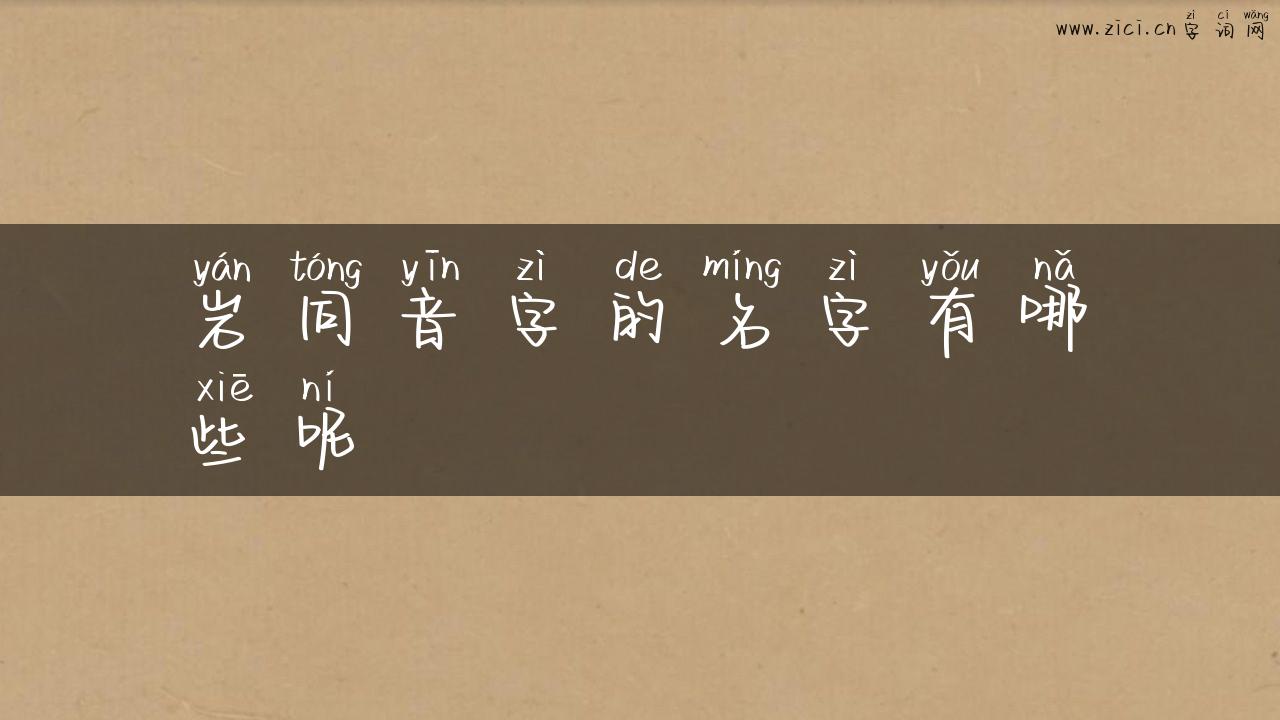 zì cí wǎng
www.zici.cn 字 词 网
yán tóng yīn zì de míng zì yǒu nǎ
岩 同 音 字 的 名 字 有 哪
xiē ní
些 呢